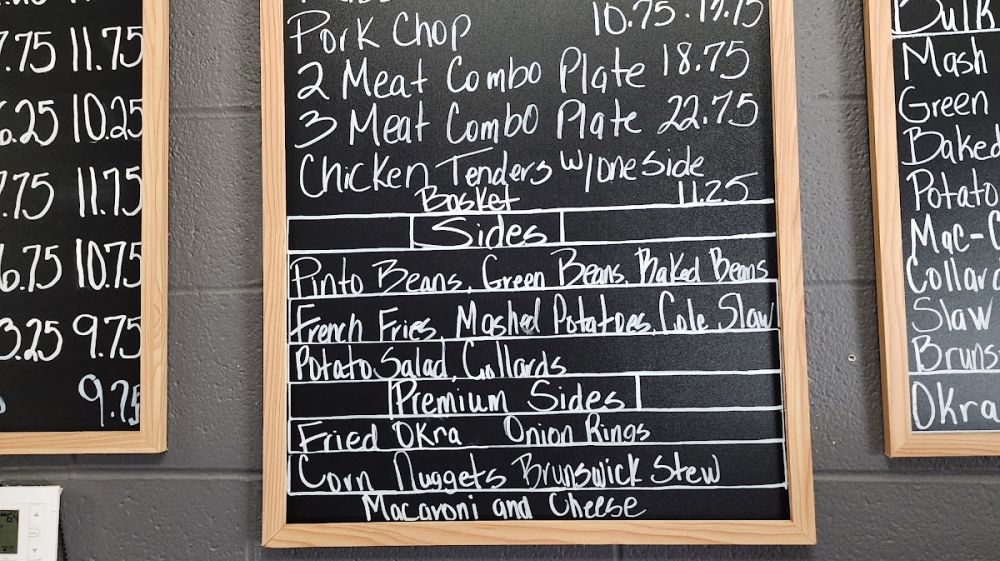 .75 11.75
6.25 10.25
7.75 11.75
6.75 10.75
3.25 9.75
9.75
Pork Chop 10.75
2 Meat Combo Plate 18.75
3 Meat Combo Plate 22.75
Chicken Tenders w/one side
Basket 11.25
Sides
Pinto Beans, Green Beans, Baked Beans
French Fries, Mashed Potatoes, Cole Slaw
Potato Salad, Collards
Premium Sides
Fried Okra Onion Rings
Corn Nuggets Brunswick Stew
Macaroni and Cheese
Bulk
Mash
Green
Baked
Potato
Mac-C
Collard
Slaw
Bruns
Okra